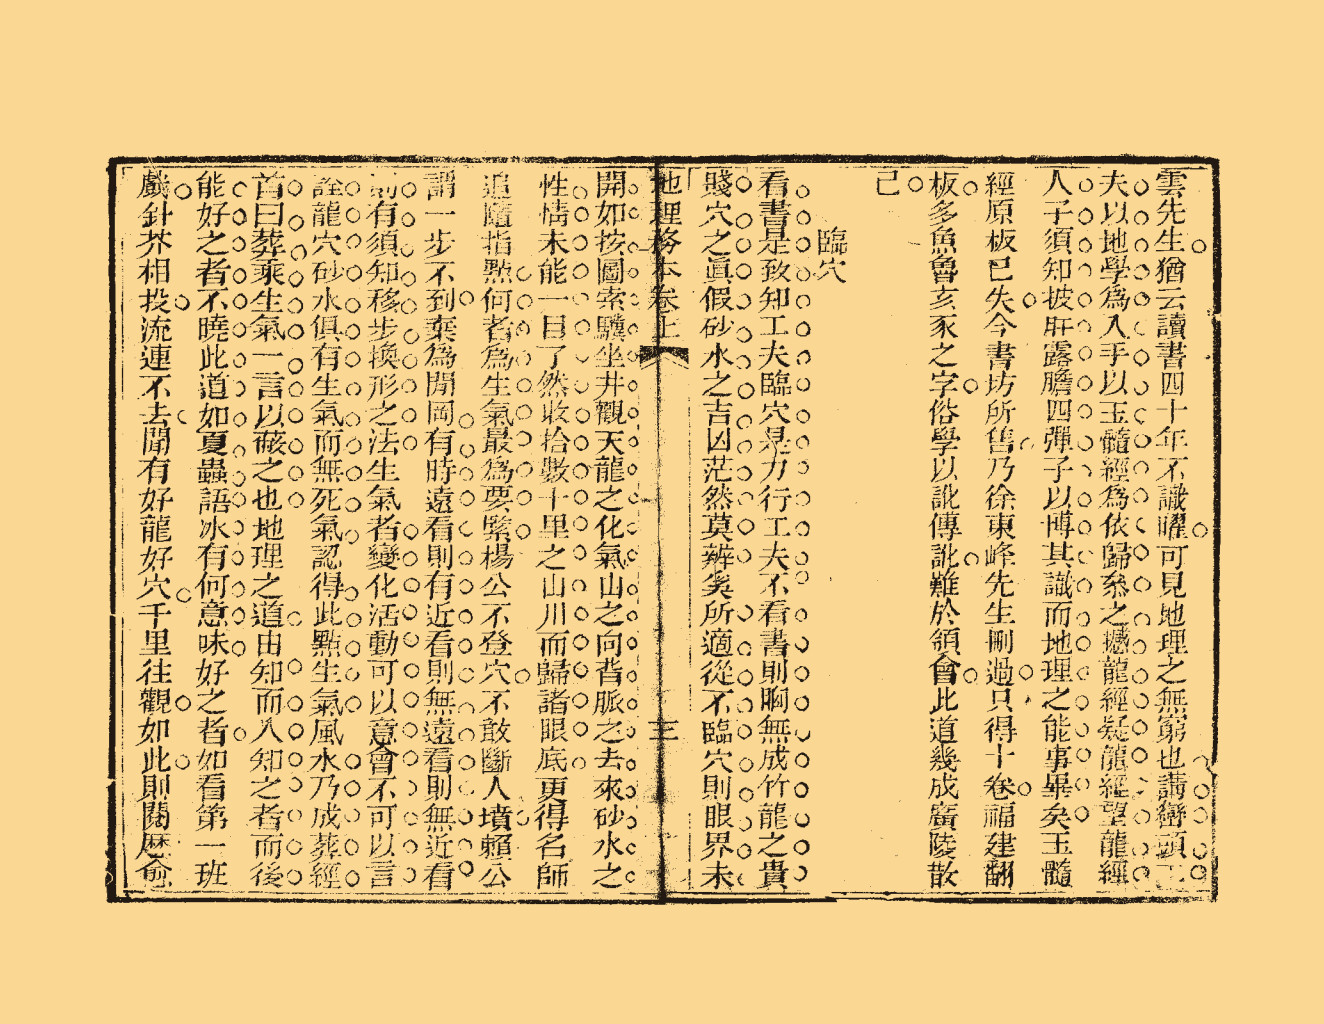 雲先生猶云讀書四十年不識曜可見地理之無窮也講巒頭工
夫以地學為入手以玉髓經為依歸叅之撼龍經疑龍經望龍經
人子須知披肝露膽四彈子以博其識而地理之能事畢矣玉髓
經原板已失今書坊所售乃徐東峰先生刪過只得十卷福建翻
板多魚魯亥豕之字俗學以訛傳訛難於領會此道幾成廣陵散
已
臨穴
看書是致知工夫臨穴是力行工夫不看書則胸無成竹龍之貴
賤穴之眞假砂水之吉凶茫然莫辨奚所適從不臨穴則眼界未
地理務本卷上
三
開如按圖索驥坐井觀天龍之化氣山之向背脈之去來砂水之
性情未能一目了然收拾數十里之山川而歸諸眼底更得名師
追隨指點何者為生氣最為要緊楊公不登穴不敢斷人墳賴公
謂一步不到棄為閒岡有時遠看則有近看則無遠看則無近看
則有須知移步換形之法生氣者變化活動可以意會不可以言
詮龍穴砂水俱有生氣而無死氣認得此點生氣風水乃成葬經
首曰葬乘生氣一言以蔽之也地理之道由知而入知之者而後
能好之者不曉此道如夏蟲語冰有何意味好之者如看第一班
戲針芥相投流連不去聞有好龍好穴千里往觀如此則閱歷愈